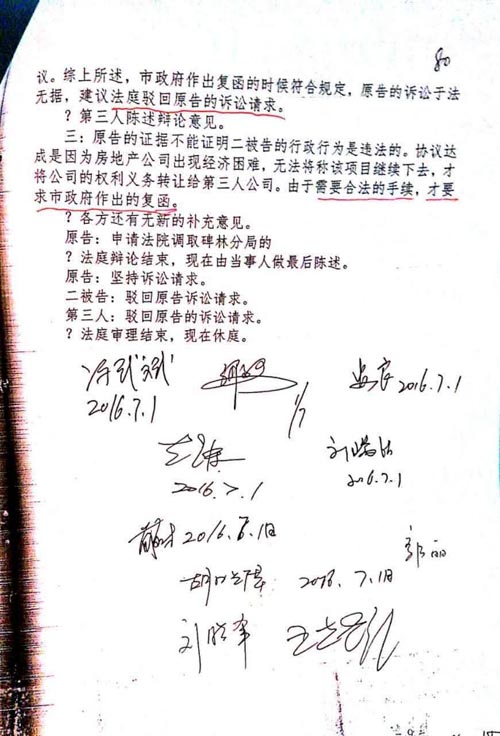 80
议。综上所述，市政府作出复函的时候符合规定，原告的诉讼于法
无据，建议法庭驳回原告的诉讼请求。
？第三人陈述辩论意见。
三：原告的证据不能证明二被告的行政行为是违法的。协议达
成是因为房地产公司出现经济困难，无法将称该项目继续下去，才
将公司的权利义务转让给第三人公司。由于需要合法的手续，才要
求市政府作出的复函。
？各方还有无新的补充意见。
原告：申请法院调取碑林分局的
？法庭辩论结束，现在由当事人做最后陈述。
原告：坚持诉讼请求。
二被告：驳回原告诉讼请求。
第三人：驳回原告的诉讼请求。
？法庭审理结束，现在休庭。
2016.7.1
1/7
2016.7.1
2016.7.1
2016.7.1
2016.7.1日
郭丽
2016.7.1日
刘晓军